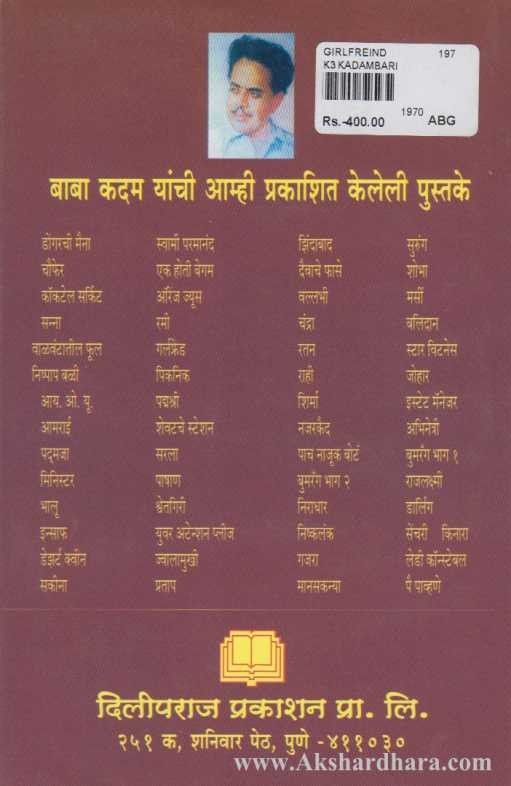 GIRLFREIND 197
K3 KADAMBARI
Rs.-400.00 1970 ABG
बाबा कदम यांची आम्ही प्रकाशित केलेली पुस्तके
डोंगरची मैना स्वामी परमानंद झिंदाबाद सुरुंग
चौफेर एक होती बेगम दैवाचे फासे शोभा
कॉकटेल सर्किट ऑरेंज ज्यूस वल्लभी मर्सी
सन्ना रमी चंद्रा बलिदान
वाळवंटातील फूल गर्लफ्रेंड रतन स्टार विटनेस
निष्पाप बळी पिकनिक राही जोहार
आय. ओ. यू. पद्मश्री शिर्मा इस्टेट मॅनेजर
आमराई शेवटचे स्टेशन नजरकैद अभिनेत्री
पद्मजा सरला पाच नाजूक बोटं बुमरँग भाग १
मिनिस्टर पाषाण बुमरँग भाग २ राजलक्ष्मी
भालू श्वेतगिरी निराधार डार्लिंग
इन्साफ युवर अटेन्शन प्लीज निष्कलंक सेंचरी किनारा
डेझर्ट क्वीन ज्वालामुखी गजरा लेडी कॉन्स्टेबल
सकीना प्रताप मानसकन्या पै पाव्हणे
दिलीपराज प्रकाशन प्रा. लि.
२५१ क, शनिवार पेठ, पुणे -४११०३०
www.Akshardhara.com